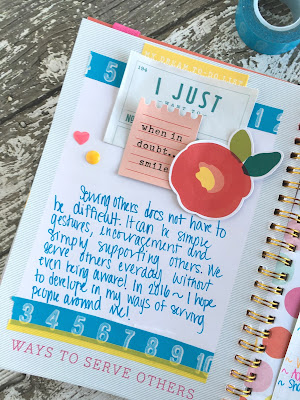 MY DREAM TO-DO LIST
204
I JUST
WANT TO
NO
1
5
when in
doubt...
smile
Serving others does not have to
be difficult. It can be simple
gestures, encouragement and
simply supporting others. We
serve others everyday without
even being aware! In 2016~ I hope
to develope in my ways of serving
people around me!
3 4 5 6 7 8 9 10
WAYS TO SERVE OTHERS